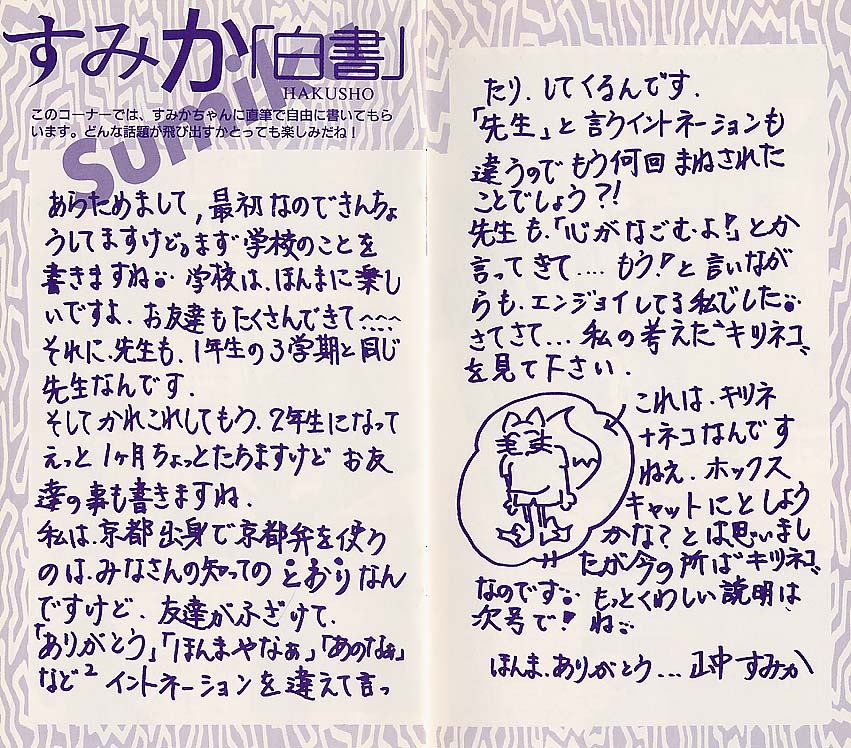 すみか「白書」
HAKUSHO
Sumika
このコーナーでは、すみかちゃんに直筆で自由に書いてもら
います。どんな話題が飛び出すかとっても楽しみだね！
あらためまして,最初なのできんちょ
うしてますけど。まず学校のことを
書きますね。学校は、ほんまに楽し
いですよ.お友達もたくさんできて〜〜〜
それに、先生も、1年生の3学期と同じ
先生なんです.
そしてかれこれしてもう、2年生になって
えっと1ヶ月ちょっとたちますけどお友
達の事も書きますね.
私は、京都出身で京都弁を使う
のは、みなさんの知ってのとおりなん
ですけど.友達がふざけて、
「ありがとう」「ほんまやなぁ」「あのなぁ」
など2 イントネーションを違えて言っ
たり.してくるんです.
「先生」と言うイントネーションも
違うのでもう何回まねされた
ことでしょう?!
先生も、「心がなごむよ!」とか
言ってきて....もう!と言いなが
らも、エンジョイしてる私でした。
さてさて...私の考えた"キツネコ"
を見て下さい.
これは、キツネ
+ネコなんです
ねぇ.ホックス
キャットにとしよう
かな?とは思いまし
たが今の所は"キツネコ"
なのです。もっとくわしい説明は
次号で!ね。
ほんま、ありがとう...正中すみか